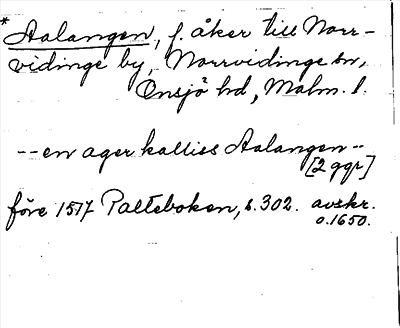 * Aalangen, f. åker till Norr-
vidinge by, Norrvidinge sn,
Onsjö hd, Malm. l.
--en ager kalliss Aalangen--
[2 ggr]
före 1517 Palteboken, s. 302. avskr.
o. 1650.